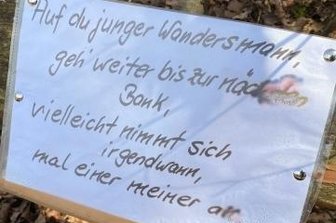 Auf du junger Wandersmann,
geh' weiter bis zur
Bank,
vielleicht nimmt sich
irgendwann,
mal einer meiner an